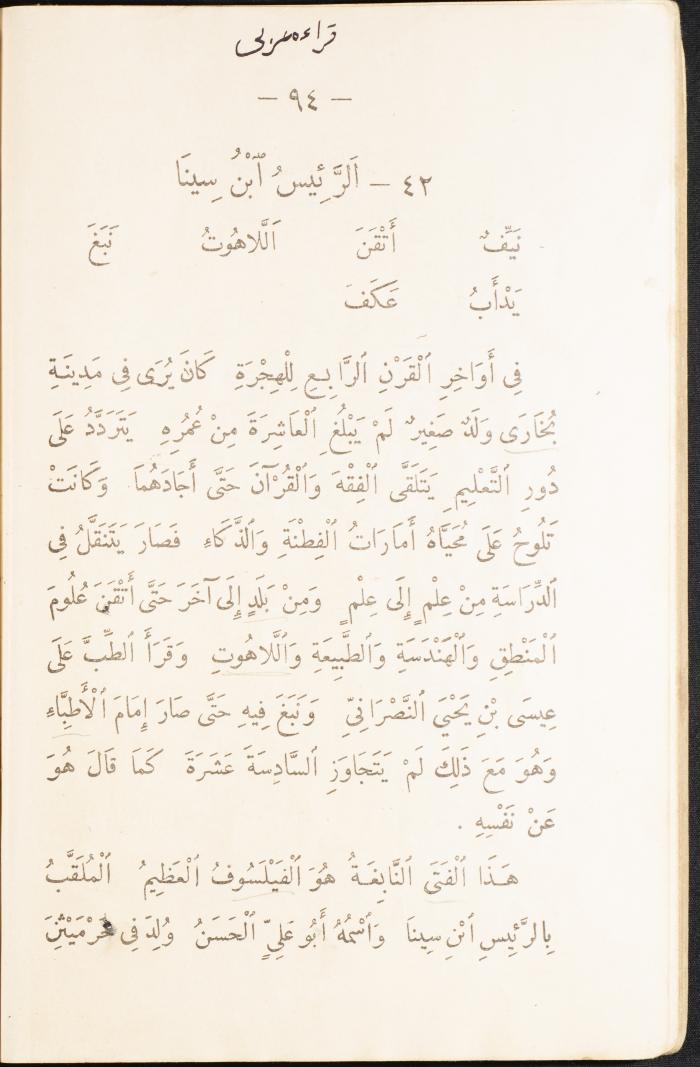 قراءه عربى
— ٩٤ —
٤٢ — اَلرَّئِيسُ ٱبْنُ سِينَا
نَيِّفٌ أَتْقَنَ اَللَّاهُوتُ نَبَغَ
يَدْأَبُ عَكَفَ
فِي أَوَاخِرِ ٱلْقَرْنِ ٱلرَّابِعِ لِلْهِجْرَةِ كَانَ يُرَى فِي مَدِينَةِ
بُخَارَى وَلَدٌ صَغِيرٌ لَمْ يَبْلُغِ ٱلْعَاشِرَةَ مِنْ عُمُرِهِ يَتَرَدَّدُ عَلَى
دُورِ ٱلتَّعْلِيمِ يَتَلَقَّى ٱلْفِقْهَ وَٱلْقُرْآنَ حَتَّى أَجَادَهُمَا وَكَانَتْ
تَلُوحُ عَلَى مُحَيَّاهُ أَمَارَاتُ ٱلْفِطْنَةِ وَٱلذَّكَاءِ فَصَارَ يَتَنَقَّلُ فِي
ٱلدِّرَاسَةِ مِنْ عِلْمٍ إِلَى عِلْمٍ وَمِنْ بَلَدٍ إِلَى آخَرَ حَتَّى أَتْقَنَ عُلُومَ
ٱلْمَنْطِقِ وَٱلْهَنْدَسَةِ وَٱلطَّبِيعَةِ وَٱللَّاهُوتِ وَقَرَأَ ٱلطِّبَّ عَلَى
عِيسَى بْنِ يَحْيَى ٱلنَّصْرَانِيِّ وَنَبَغَ فِيهِ حَتَّى صَارَ إِمَامَ ٱلْأَطِبَّاءِ
وَهُوَ مَعَ ذَلِكَ لَمْ يَتَجَاوَزِ ٱلسَّادِسَةَ عَشَرَةَ كَمَا قَالَ هُوَ
عَنْ نَفْسِهِ .
هَذَا ٱلْفَتَى ٱلنَّابِغَةُ هُوَ ٱلْفَيْلَسُوفُ ٱلْعَظِيمُ ٱلْمُلَقَّبُ
بِالرَّئِيسِ ٱبْنِ سِينَا وَٱسْمُهُ أَبُو عَلِيٍّ ٱلْحَسَنُ وُلِدَ فِي خَرْمَيْثَنَ